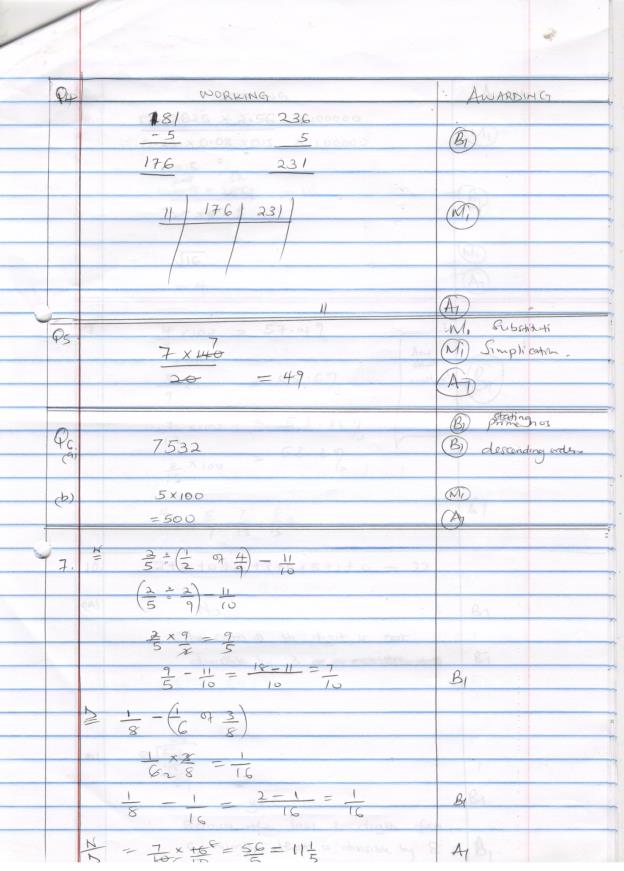 Q4 WORKING AWARDING
181 236
- 5 5 B1
176 231
11 | 176 | 231 M1
11 A1
Q5 M1 Substituti
7 × 140 7 M1 Simplication.
20 = 49 A1
B1 stating prime nos
Q6 (a) 7532 B1 descending order
(b) 5 × 100 M1
= 500 A1
7. N = 2/5 ÷ (1/2 of 4/9) - 11/10
(2/5 ÷ 2/9) - 11/10
2/5 × 9/2 = 9/5
9/5 - 11/10 = 18-11/10 = 7/10 B1
D = 1/8 - (1/6 of 3/8)
1/6 2 × 3/8 = 1/16
1/8 - 1/16 = 2-1/16 = 1/16 B1
N/D = 7/10 × 16 8/10 = 56/5 = 11 1/5 A1